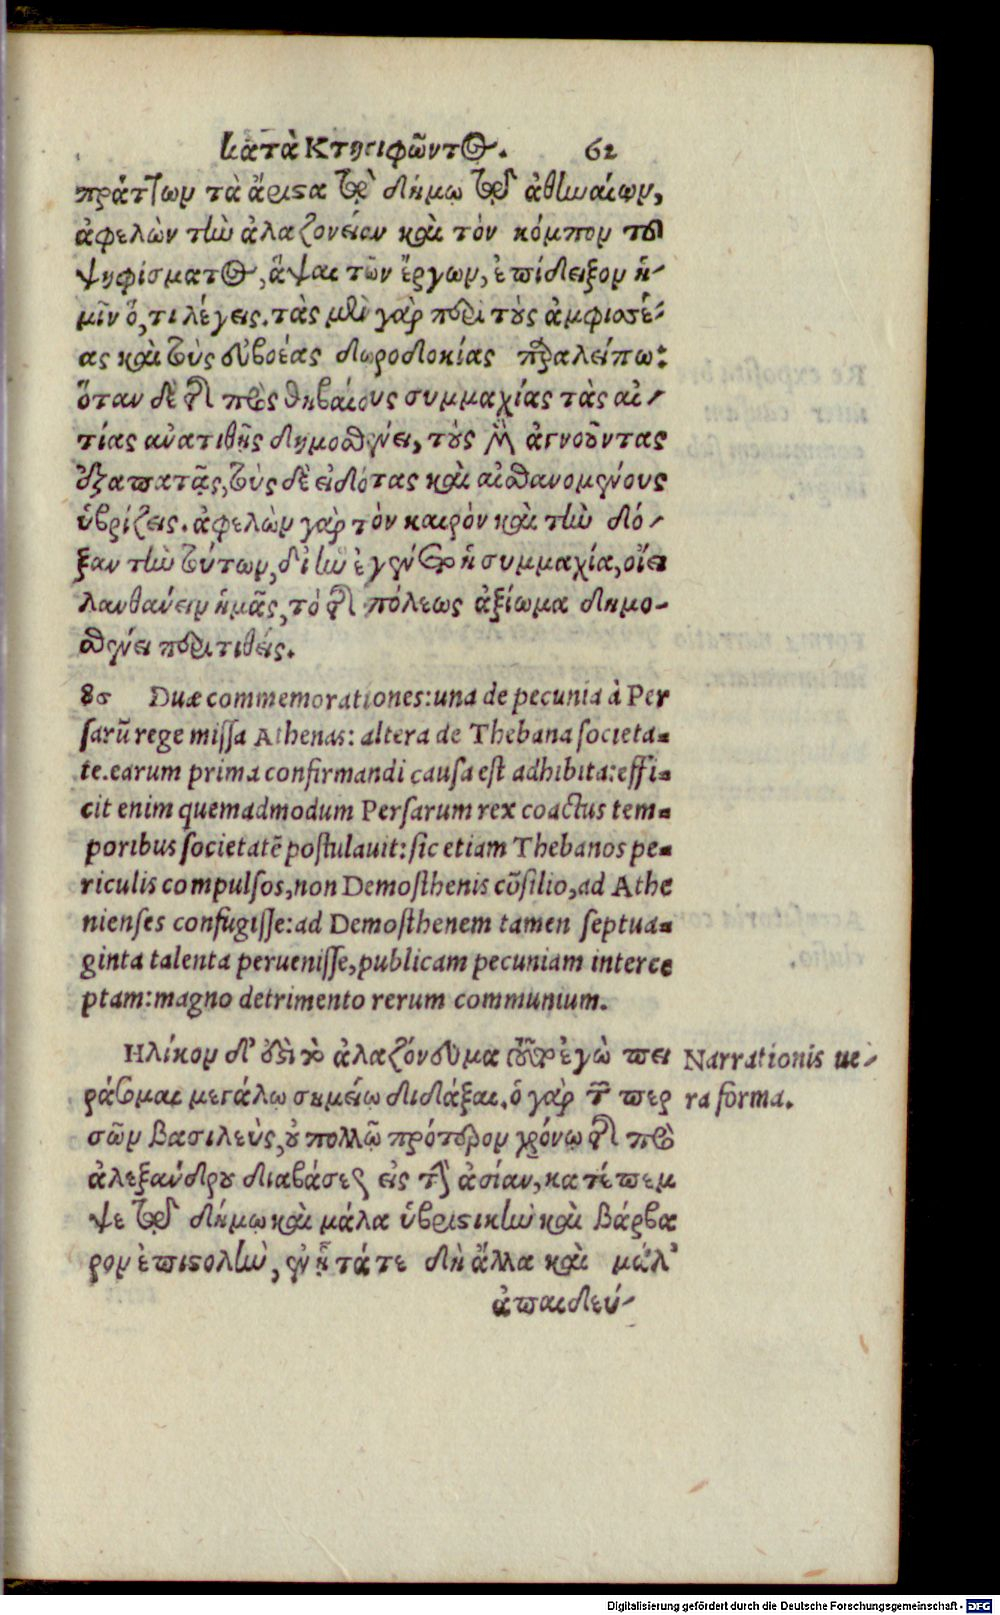 κατὰ Κτησιφῶντος. 62
πράττων τὰ ἄριστα τῷ δήμῳ τῷ ἀθηναίων,
ἀφελὼν τὴν ἀλαζονείαν καὶ τὸν κόμπον τοῦ
ψηφίσματος, ἅψαι τῶν ἔργων, ἐπίδειξον ἡ-
μῖν ὅ, τι λέγεις. τὰς μὲν γὰρ περὶ τοὺς ἀμφισσέ-
ας καὶ τοὺς εὐβοέας δωροδοκίας παραλείπω:
ὅταν δὲ τῆς πρὸς θηβαίους συμμαχίας τὰς αἰ-
τίας ἀνατιθῇς δημοσθένει, τοὺς μὲν ἀγνοοῦντας
ἐξαπατᾷς, τοὺς δὲ εἰδότας καὶ αἰσθανομένους
ὑβρίζεις. ἀφελὼν γὰρ τὸν καιρὸν καὶ τὴν δό-
ξαν τὴν τούτων, δι' ἣν ἐγένετο ἡ συμμαχία, οἴει
λανθάνειν ἡμᾶς, τὸ τῆς πόλεως ἀξίωμα δημο-
σθένει περιτιθείς.
86 Duæ commemorationes: una de pecunia à Per
sarū rege missa Athenas: altera de Thebana societa-
te. earum prima confirmandi causa est adhibita: effi-
cit enim quemadmodum Persarum rex coactus tem-
poribus societatē postulauit: sic etiam Thebanos pe-
riculis compulsos, non Demosthenis cōsilio, ad Athe
nienses confugisse: ad Demosthenem tamen septua-
ginta talenta peruenisse, publicam pecuniam interce
ptam: magno detrimento rerum communium.
Ηλίκον δ' ἐστὶ τὸ ἀλαζόνευμα τοῦτο ἐγὼ πει
ράσομαι μεγάλῳ σημείῳ διδάξαι. ὁ γὰρ τῶν περ
σῶν βασιλεὺς, οὐ πολλῷ πρότερον χρόνῳ τῆς πρὸ
ἀλεξάνδρου διαβάσεως εἰς τὴν ἀσίαν, κατέπεμ
ψε τῷ δήμῳ καὶ μάλα ὑβριστικὴν καὶ βάρβα
ρον ἐπιστολὴν, ἐν ᾗ τά τε δὴ ἄλλα καὶ μάλ'
ἀπαιδεύ-
Narrationis ue-
ra forma.
Digitalisierung gefördert durch die Deutsche Forschungsgemeinschaft - DFG